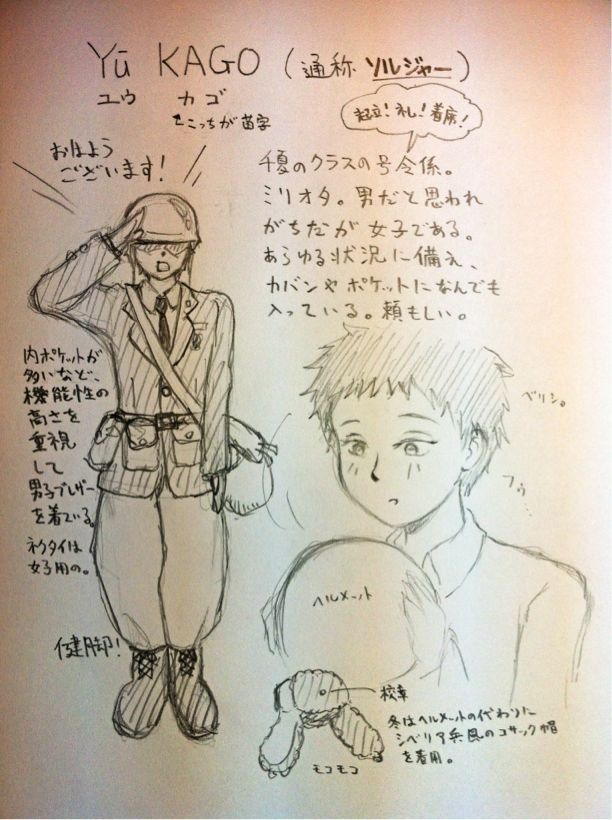 Yū KAGO (通称 ソルジャー)
ユウ カゴ
こっちが苗字
起立!礼!着席!
おはよう
ございます!
千夏のクラスの号令係。
ミリオタ。男だと思われ
がちだが女子である。
あらゆる状況に備え、
カバンやポケットになんでも
入っている。頼もしい。
内ポケットが
多いなど、
機能性の
高さを
重視
して
男子ブレザー
を着ている。
ネクタイは
女子用の。
健脚!
ベリショ。
フゥ…
ヘルメット
校章
冬はヘルメットの代わりに
シベリア兵風のコサック帽
を着用。
モコモコ